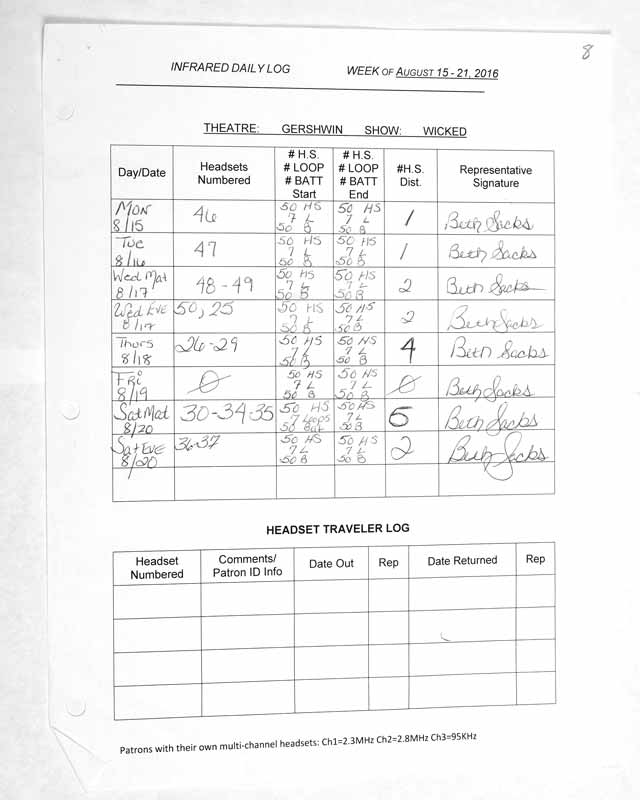 8
INFRARED DAILY LOG WEEK OF AUGUST 15 - 21, 2016
THEATRE: GERSHWIN SHOW: WICKED
Day/Date Headsets Numbered # H.S. # LOOP # BATT Start # H.S. # LOOP # BATT End #H.S. Dist. Representative Signature
MON 8/15 46 50 HS 7 L 50 B 50 HS 7 L 50 B 1 Beth Sacks
Tue 8/16 47 50 HS 7 L 50 B 50 HS 7 L 50 B 1 Beth Sacks
Wed Mat 8/17 48-49 50 HS 7 L 50 B 50 HS 7 L 50 B 2 Beth Sacks
Wed EVE 8/17 50, 25 50 HS 7 L 50 B 50 HS 7 L 50 B 2 Beth Sacks
Thurs 8/18 26-29 50 HS 7 L 50 B 50 HS 7 L 50 B 4 Beth Sacks
FRI 8/19 0 50 HS 7 L 50 B 50 HS 7 L 50 B 0 Beth Sacks
Sat Mat 8/20 30-34-35 50 HS 7 Loops 50 Bat 50 HS 7 L 50 B 5 Beth Sacks
Sat EVE 8/20 36-37 50 HS 7 L 50 B 50 HS 7 L 50 B 2 Beth Sacks
HEADSET TRAVELER LOG
Headset Numbered Comments/ Patron ID Info Date Out Rep Date Returned Rep
Patrons with their own multi-channel headsets: Ch1=2.3MHz Ch2=2.8MHz Ch3=95KHz